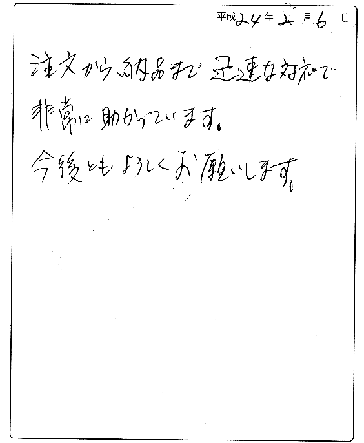 平成24年2月6日
注文から納品まで迅速な対応で
非常に助かっています。
今後ともよろしくお願いします。